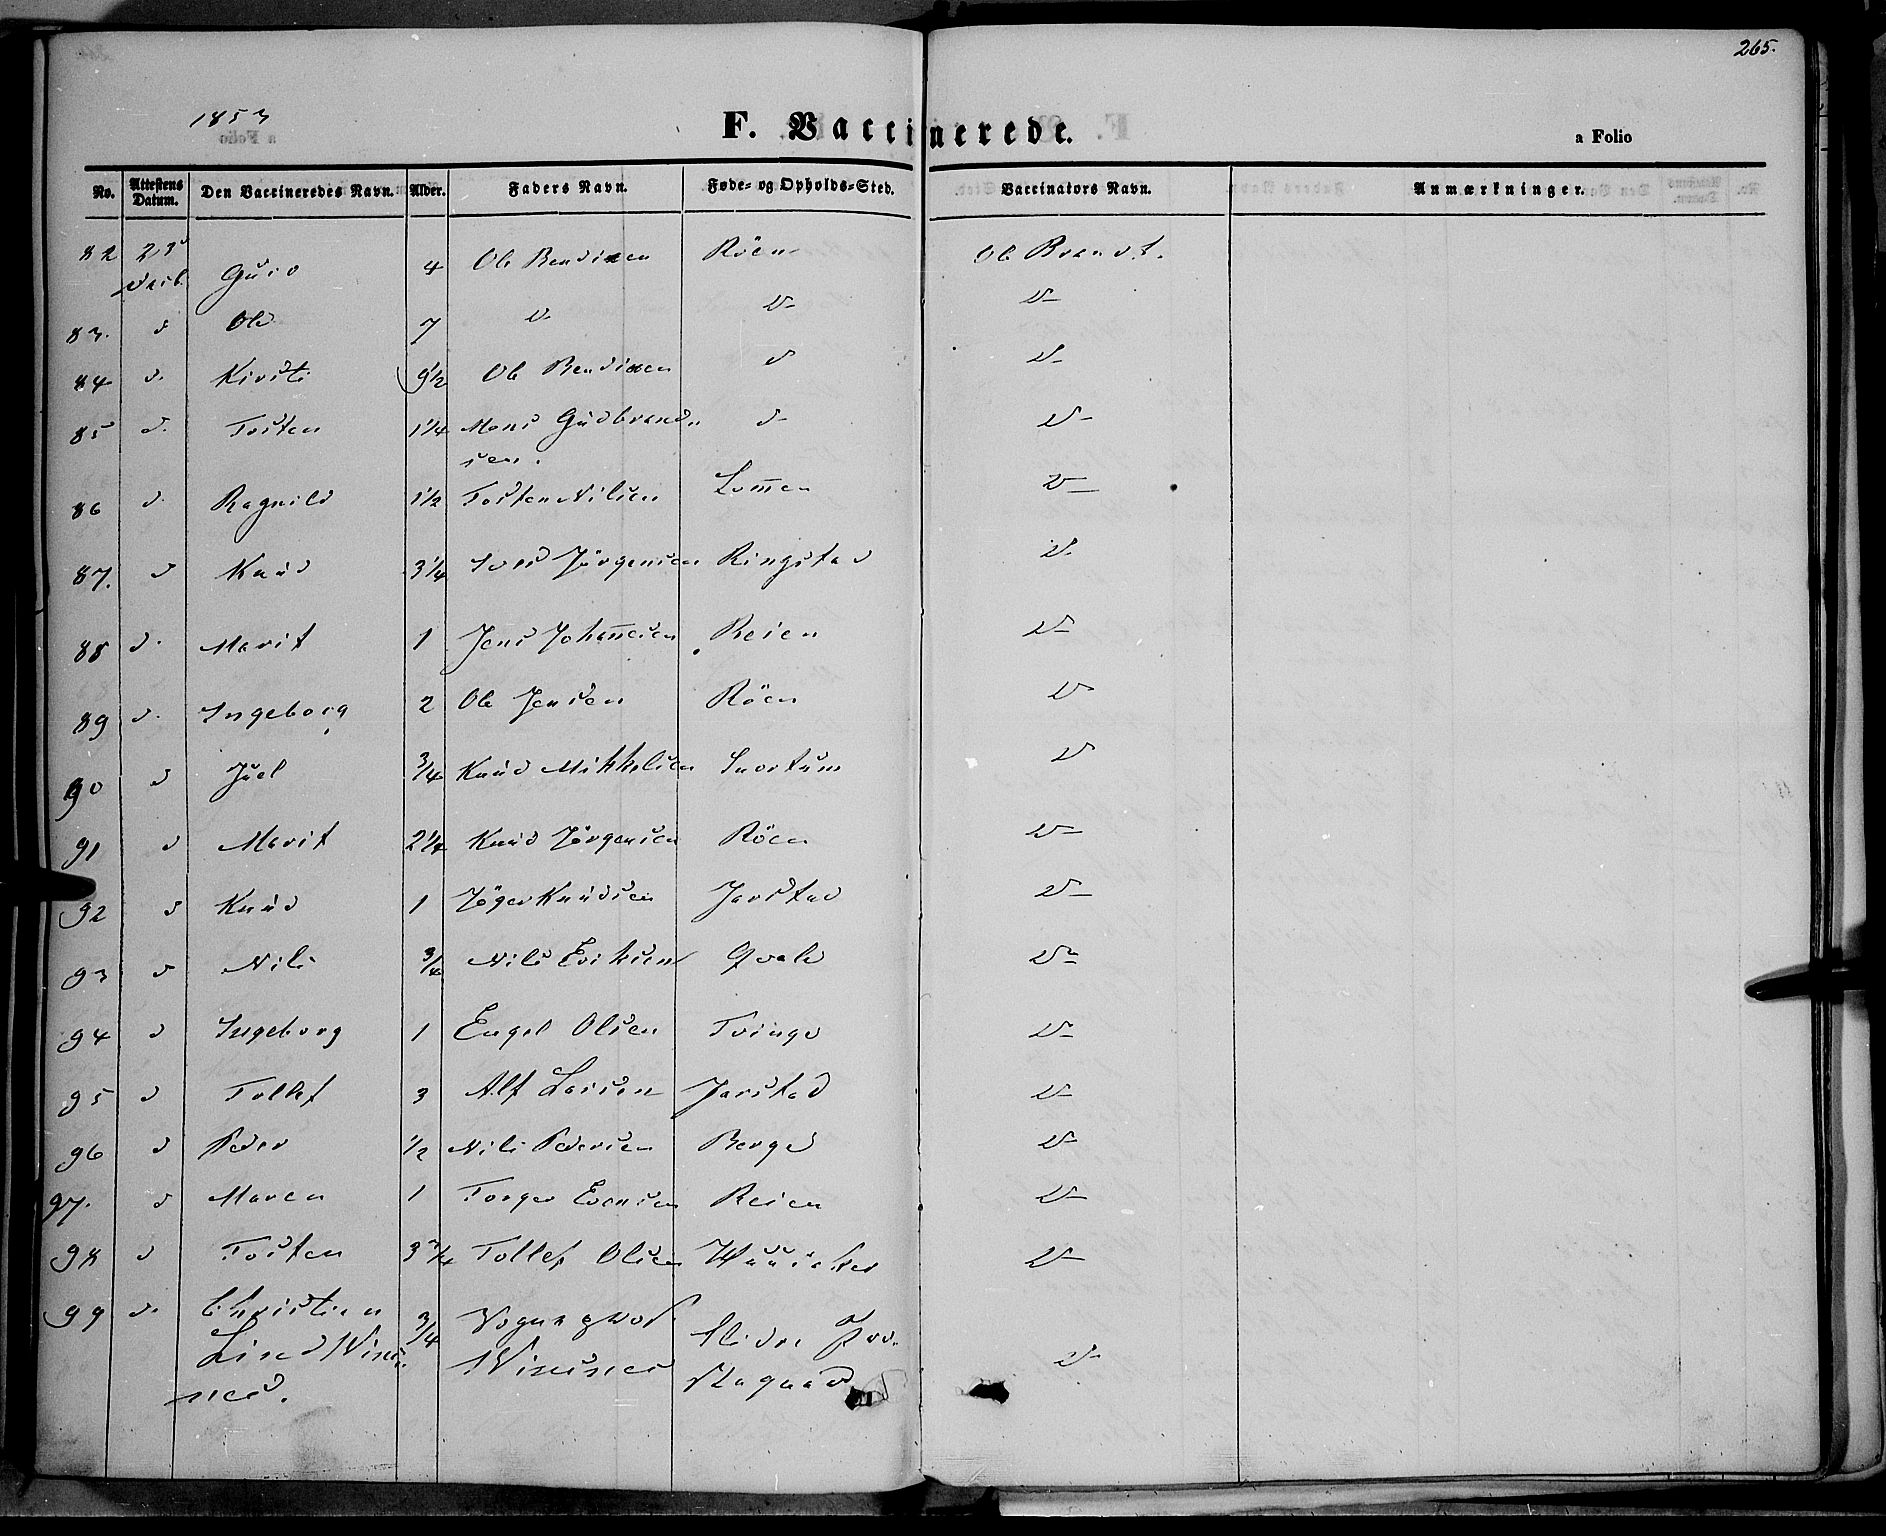 265.
1853
F. Vaccinerede.
a Folio
No. Attestens Datum. Den Vaccineredes Navn. Alder. Faders Navn. Føde- og Opholds-Sted. Vaccinators Navn. Anmærkninger.
82 23d Guro 4 Ole Bendixen Röen Ole Brandt.
83. d Ole 7 d- d- d-
84 d. Kirsti 9½ Ole Bendixen d d-
85 d. Tosten 1¼ Mons Gudbrand- d- d-
sen.
86 d. Ragnild 1½ Tosten Nilsen Lom̄en d-
87. d Knud 3¼ Iver Jörgensen Ringstad d-
88 d. Marit 1 Jens Johan̄esen Reien d-
89 d. Ingeborg 2 Ole Jensen Röen d
90 d Juel ¾ Knud Mikkelsen d
91 d Marit 2¼ Knud Jörgensen Röen d-
92 d Knud 1 Jöger Knudsen Jarstad d-
93 d Nils ¾ Nils Eriksen Qvale d-
94 d Ingeborg 1 Engel Olsen Tvinge d-
95 d Tollef 3 Alf Larsen Jarstad d-
96 d Peder ½ Nils Pedersen Berge d-
97. d Maren 1 Torger Evensen Reien d-
98 d Tosten 3¾ Tollef Olsen d-
99 d. Christian ¾
Slidre Præ-